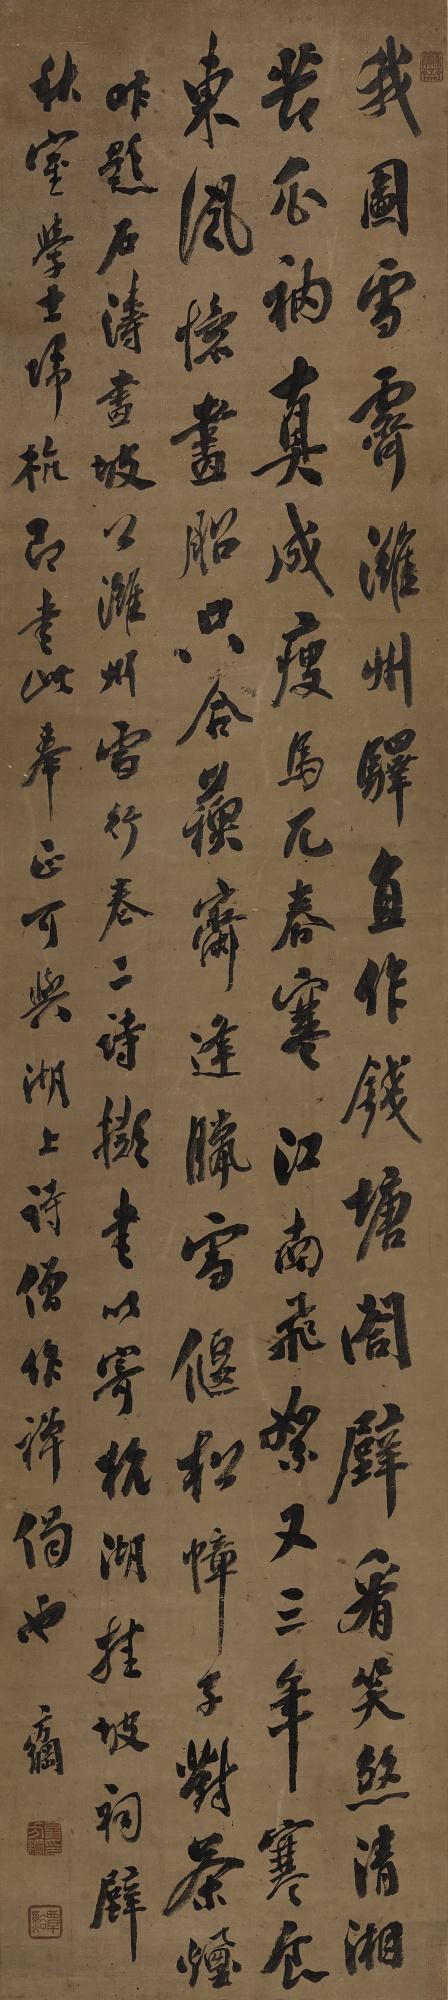 我圖雪霽濰州驛直作錢塘閣壁看笑煞清湘
苦瓜衲真成瘦馬兀春寒江南飛絮又三年寒食
東風憶畫船只合蘓齋逢臘雪偃松幛子對茶煙
昨題石濤畫坡公濰州雪行卷二詩擬書以寄杭湖挂坡祠壁
秋室學士歸杭即書此奉正可與湖上詩僧作禪偈也 方綱
覃谿